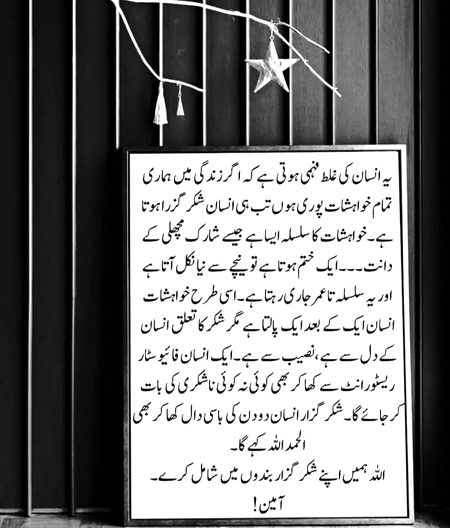 یہ انسان کی غلط فہمی ہوتی ہے کہ اگر زندگی میں ہماری
تمام خواہشات پوری ہوں تب ہی انسان شکر گزرا ہوتا
ہے۔ خواہشات کا سلسلہ ایسا ہے جیسے شارک مچھلی کے
دانت۔۔۔ ایک ختم ہوتا ہے تو نیچے سے نیا نکل آتا ہے
اور یہ سلسلہ تاعمر جاری رہتا ہے۔ اسی طرح خواہشات
انسان ایک کے بعد ایک پالتا ہے مگر شکر کا تعلق انسان
کے دل سے ہے، نصیب سے ہے۔ ایک انسان فائیو سٹار
ریسٹورانٹ سے کھا کر بھی کوئی نہ کوئی ناشکری کی بات
کر جائے گا۔ شکر گزار انسان دو دن کی باسی دال کھا کر بھی
الحمد اللہ کہے گا۔
اللہ ہمیں اپنے شکر گزار بندوں میں شامل کرے۔
آمین!